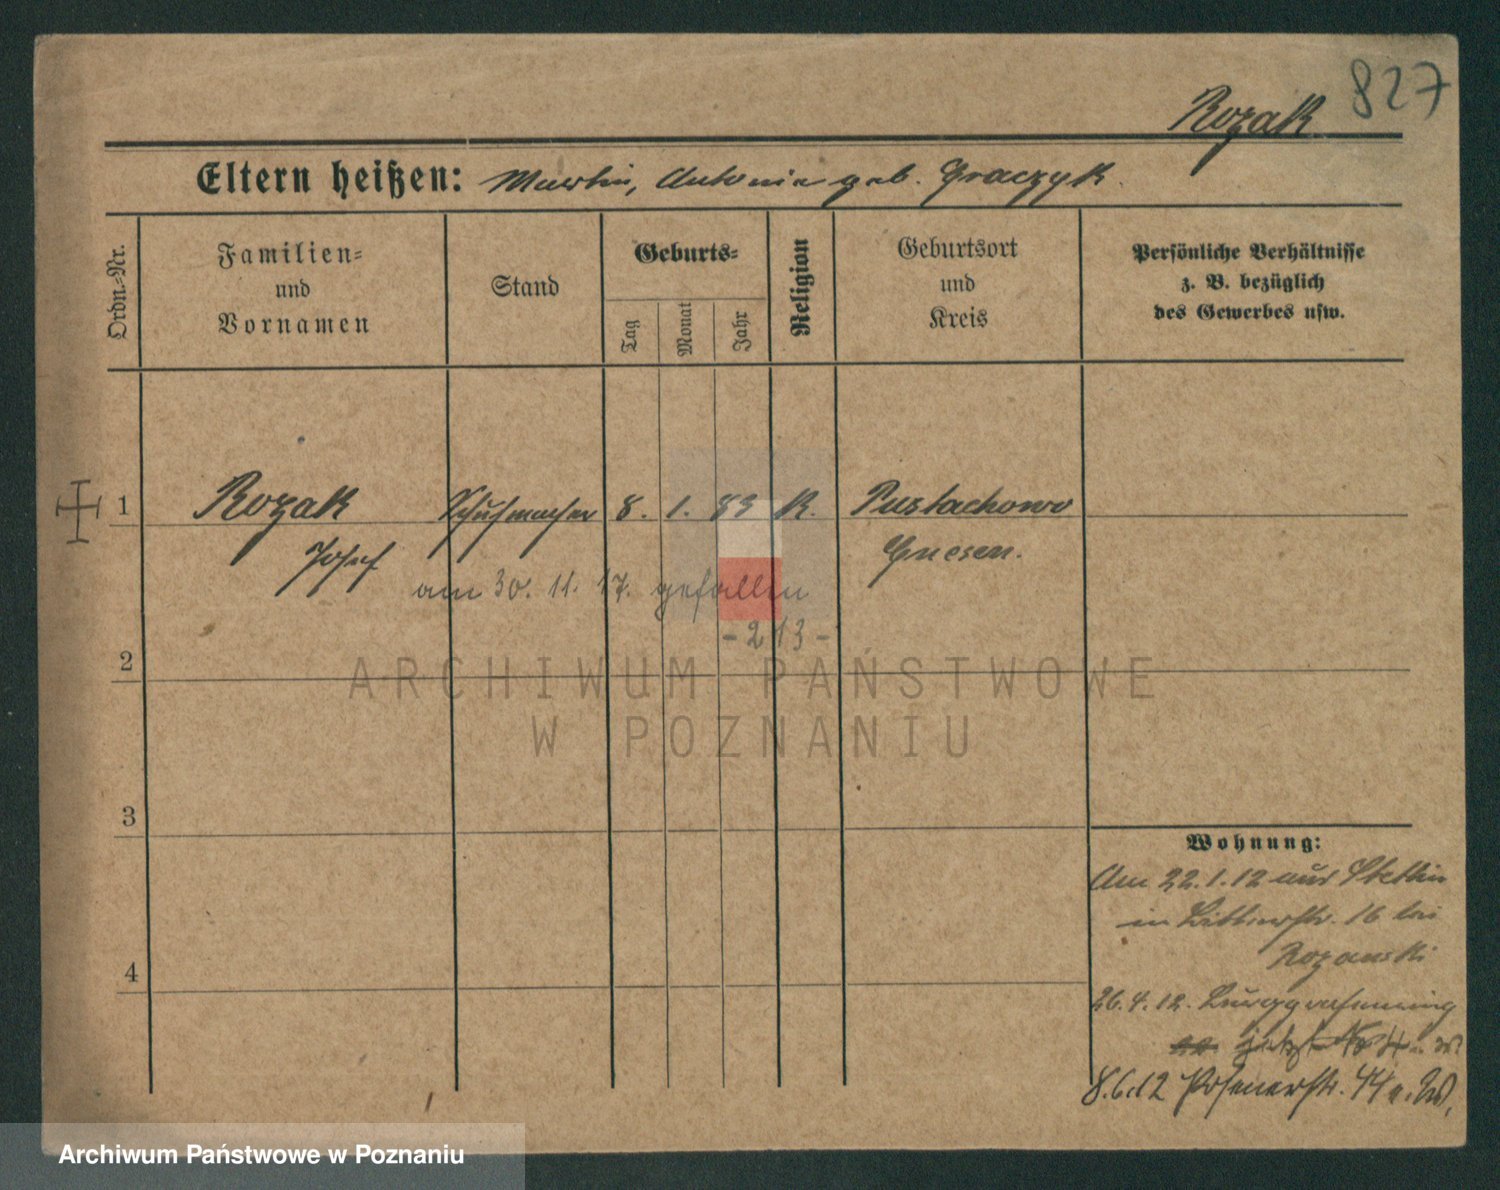 827
Rozak
Eltern heißen: Martin, Antonie geb. Graczyk.
Ordn.-Nr.
Familien-
und
Vornamen
Stand
Geburts-
Tag
Monat
Jahr
Religion
Geburtsort
und
Kreis
Persönliche Verhältnisse
z. B. bezüglich
des Gewerbes usw.
1 Rozak Schuhmacher 8. 1. 83 K. Pustachowo
Josef Gnesen.
am 30. 11. 17. gefallen
- 213 -
2
ARCHIWUM PAŃSTWOWE
W POZNANIU
3
Wohnung:
Am 22.1.12 aus Stettin
in 16 bei
Rozanski
4
26.4.12.
jetzt
8.6.12 Posenerstr. 44 a. W.
Archiwum Państwowe w Poznaniu